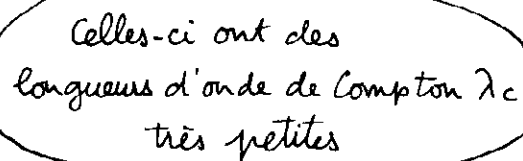 Celles-ci ont des
longueurs d'onde de Compton λc
très petites